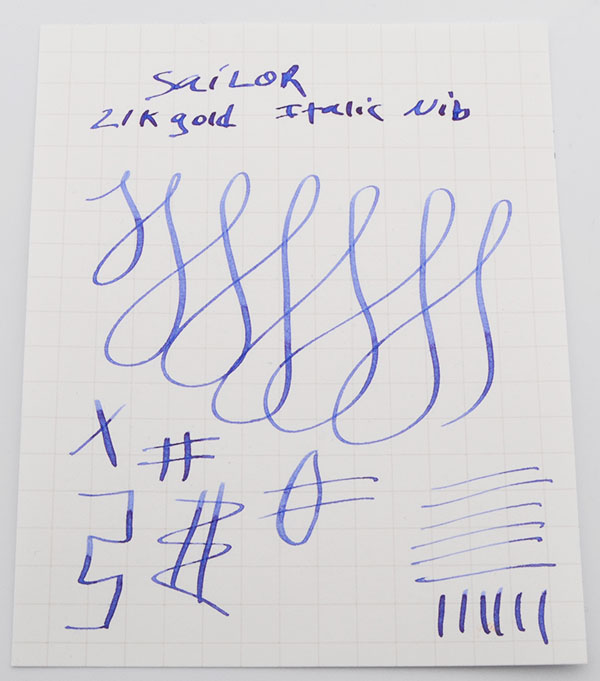 SaiLOR
21K gold Italic Nib
X #